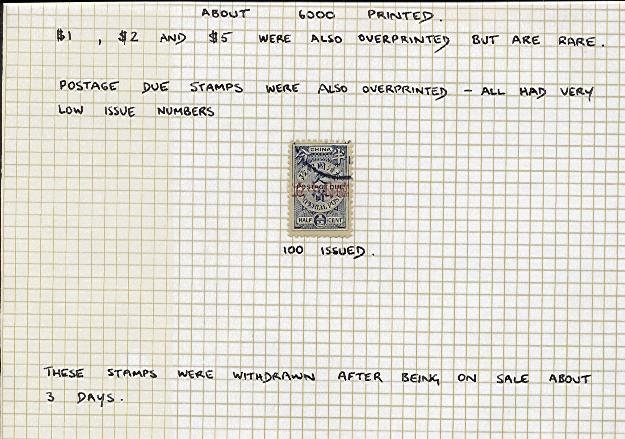 ABOUT 6000 PRINTED.
$1, $2 AND $5 WERE ALSO OVERPRINTED BUT ARE RARE.
POSTAGE DUE STAMPS WERE ALSO OVERPRINTED - ALL HAD VERY
LOW ISSUE NUMBERS
CHINA
POSTAGE DUE
IMPERIAL POST
HALF CENT
100 ISSUED.
THESE STAMPS WERE WITHDRAWN AFTER BEING ON SALE ABOUT
3 DAYS.